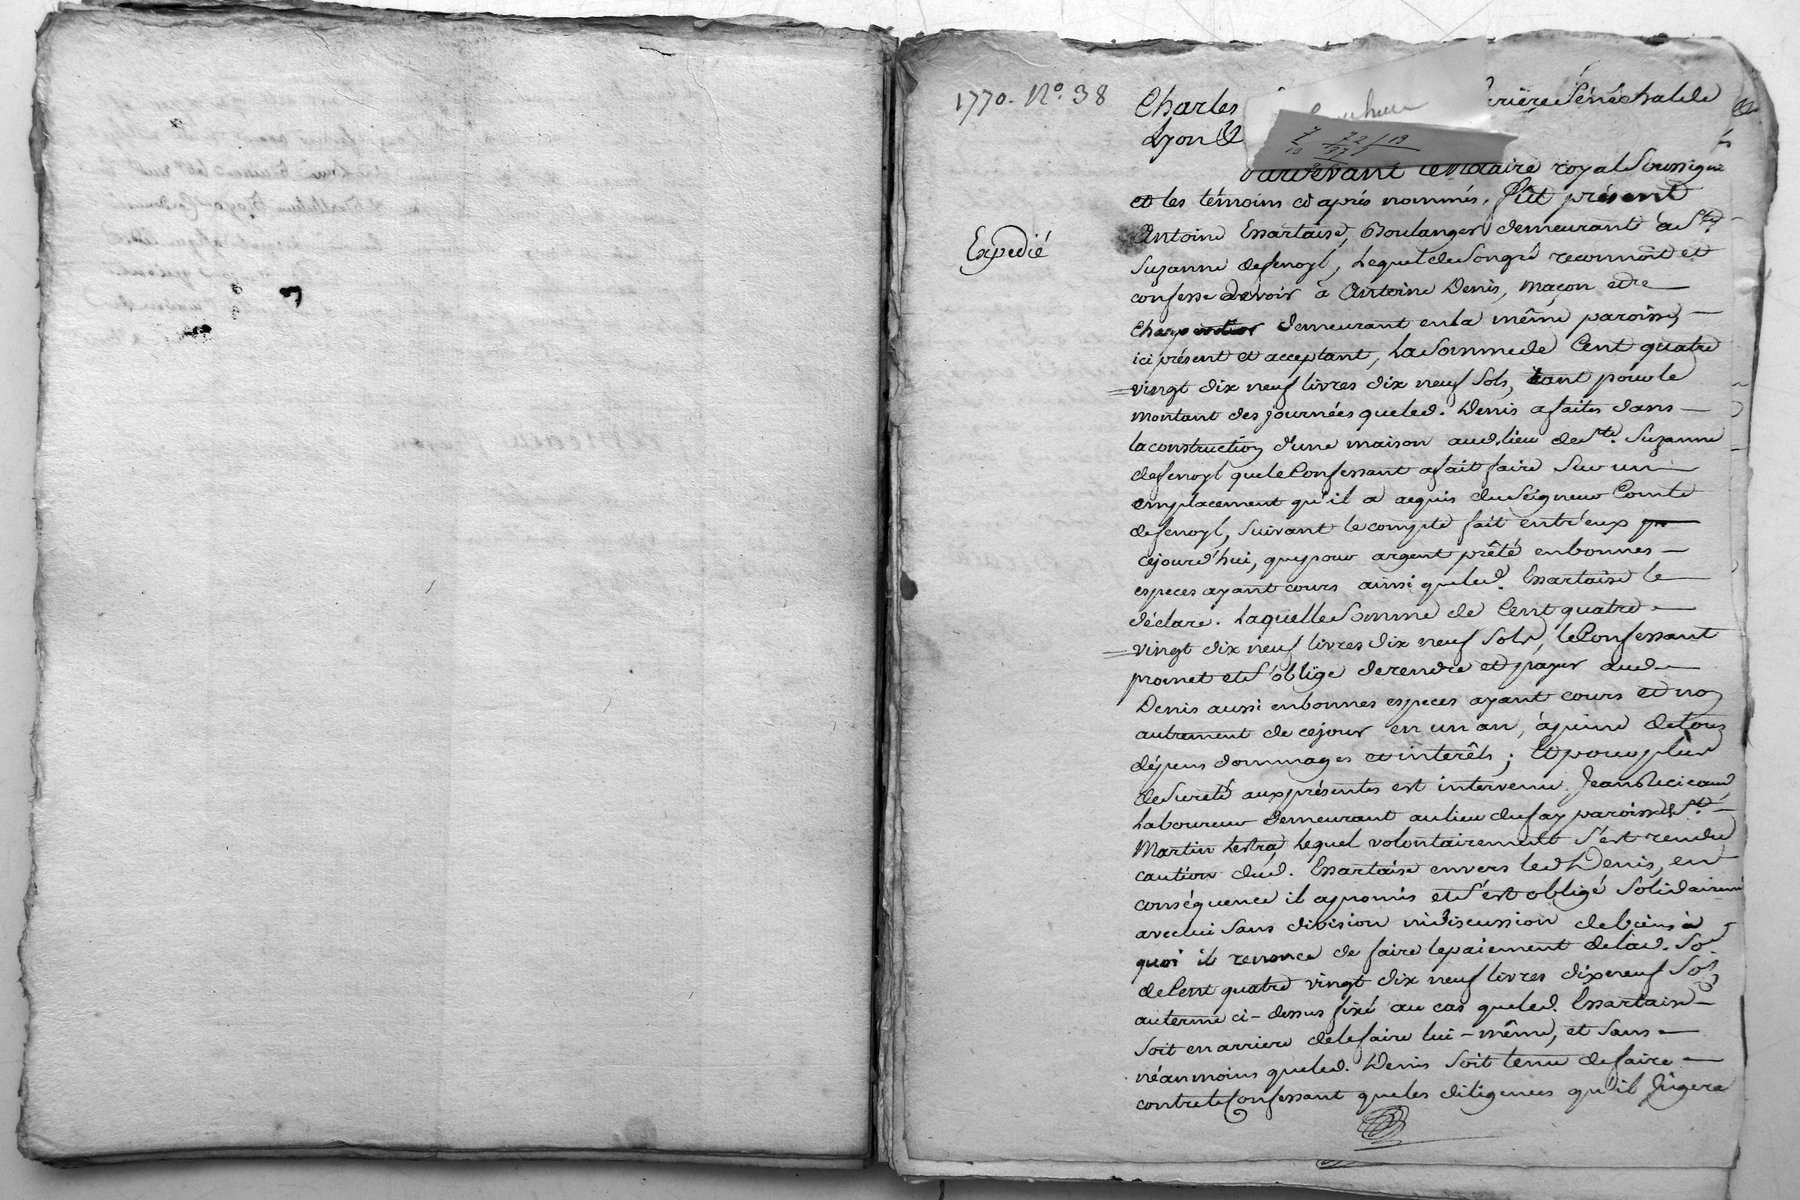 1770. No. 38
Charles
Sénéchal de
Lyon &
Pardevant le Notaire royal Soussigné
et les témoins ci après nommés, fut présent
Expedié
Antoine Essartaise, Boulanger demeurant à Ste
Suzanne defenoyl, Lequel de Son gré reconnoit et
confesse devoir à Antoine Denis, maçon et de
Charpentier demeurant en la même paroisse,
ici présent et acceptant, La Somme de Cent quatre
vingt dix neuf livres dix neuf Sols, tant pour le
montant des journées queled. Denis a faites dans
la construction d'une maison aud. lieu de Ste. Suzanne
defenoyl que le Confessant a fait faire Sur un
emplacement qu'il a acquis du Seigneur Comte
defenoyl, Suivant le compte fait entr'eux
cejourd'hui, que pour argent prêté en bonnes
especes ayant cours ainsi queled. Essartaise le
déclare. Laquelle Somme de Cent quatre
vingt dix neuf livres dix neuf Sols, le Confessant
promet et S'oblige de rendre et payer aud.
Denis aussi en bonnes especes ayant cours et non
autrement de ce jour en un an, à peine de tous
dépens dommages et interêts ; Et pour plus
de Sureté aux présentes est intervenu Jean
Laboureur demeurant au lieu du fay paroisse de St.
Martin Lestra, Lequel volontairement S'est rendu
caution dud. Essartaise envers led. Denis, en
conséquence il a promis et S'est obligé Solidairement
avec lui Sans division ni discussion de biens à
quoi il renonce de faire le paiement de lad. So^e
de Cent quatre vingt dix neuf livres dix neuf Sols
au terme ci-dessus fixé au cas queled. Essartaise
Soit en arriere de le faire lui-même, et Sans
néanmoins queled. Denis Soit tenu de faire
contre le Confessant que les diligences qu'il Jugera